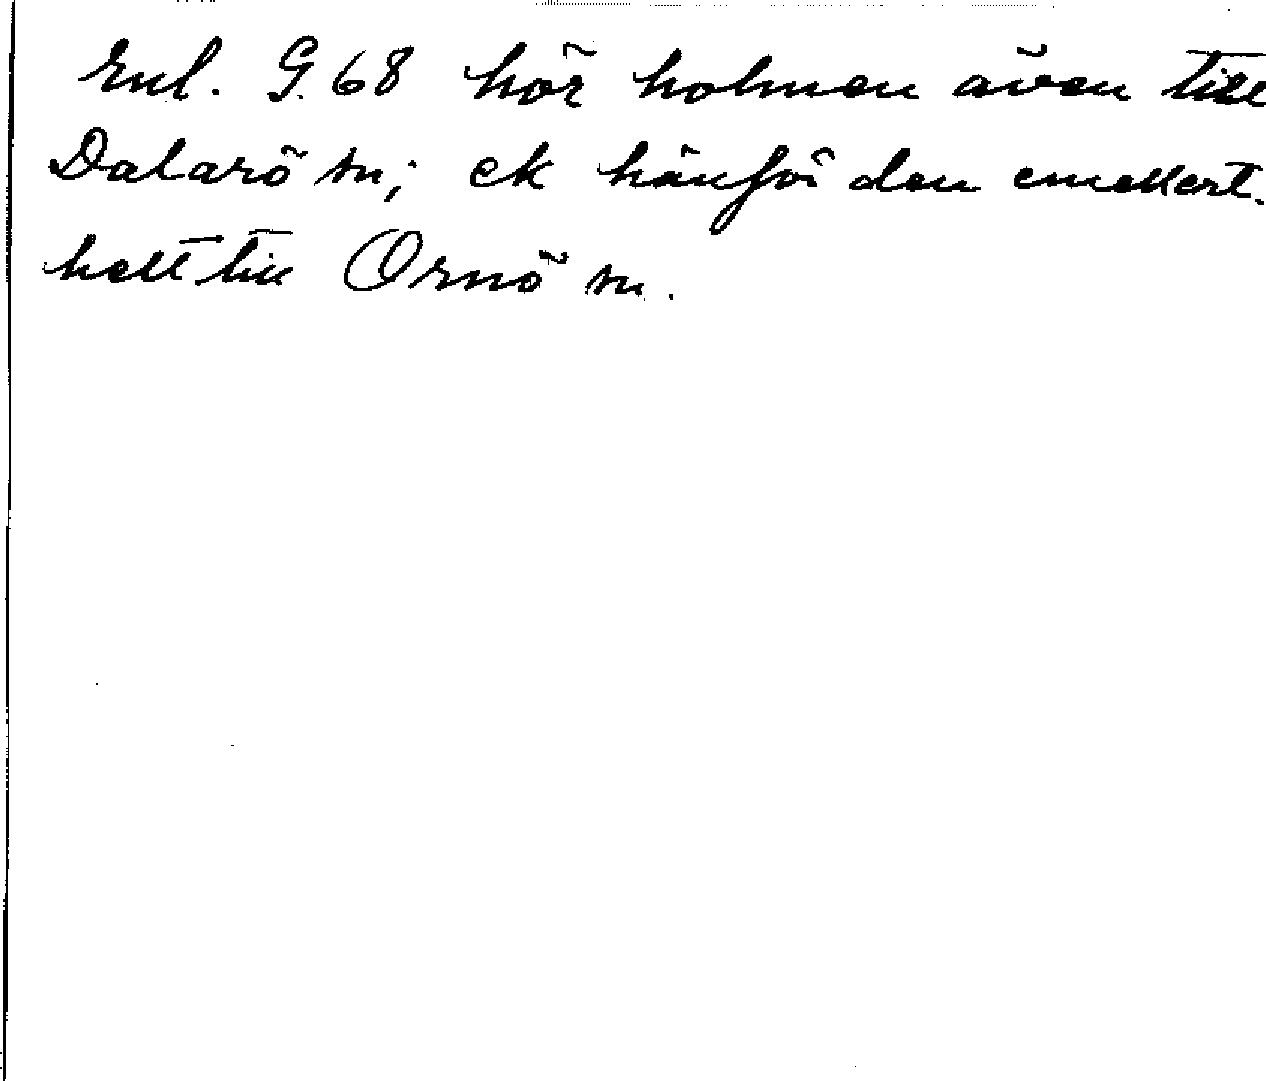 Enl. G. 68 hör holmen även till
Dalarö sn; ek hänför den emellert.
helt till Ornö sn.